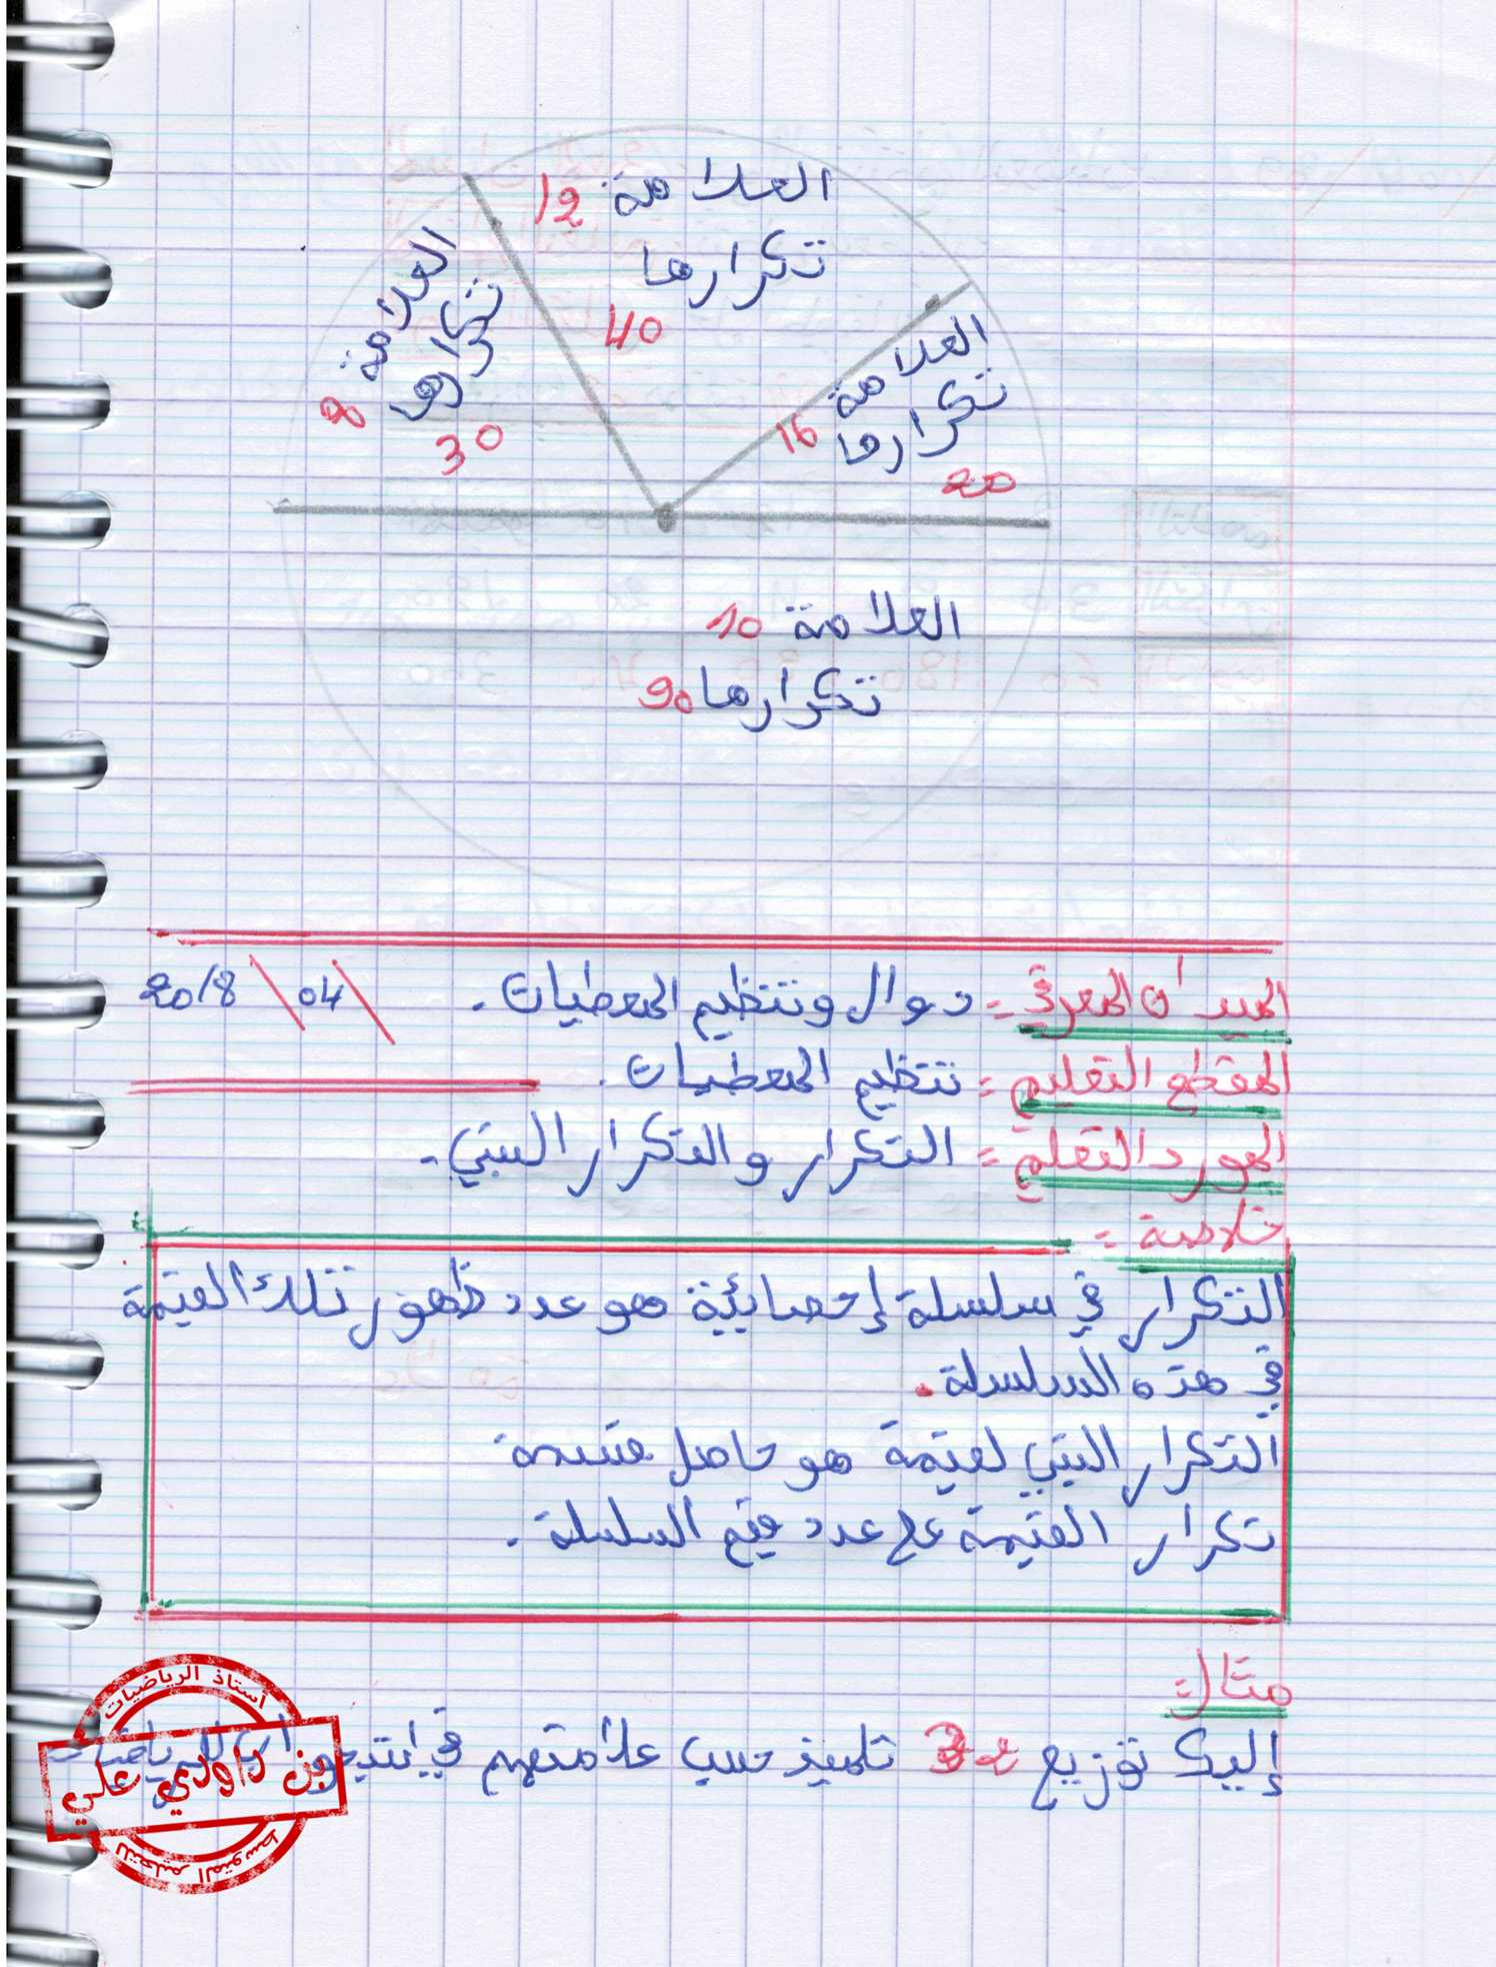 العلامة 12
تكرارها
40
العلامة 8
تكرارها
30
العلامة 16
تكرارها
20
العلامة 10
تكرارها 90
الميدان المعرفي = دوال وتنظيم المعطيات. / 04 / 2018
المقطع التعليمي = تنظيم المعطيات.
المورد التعلمي = التكرار والتكرار النسبي.
خلاصة =
التكرار في سلسلة إحصائية هو عدد ظهور تلك القيمة
في هذه السلسلة.
التكرار النسبي لقيمة هو حاصل قسمة
تكرار القيمة على عدد قيم السلسلة.
مثال =
إليك توزيع 32 تلميذ حسب علامتهم في
أستاذ الرياضيات
بن داودي علي
للتعليم المتوسط